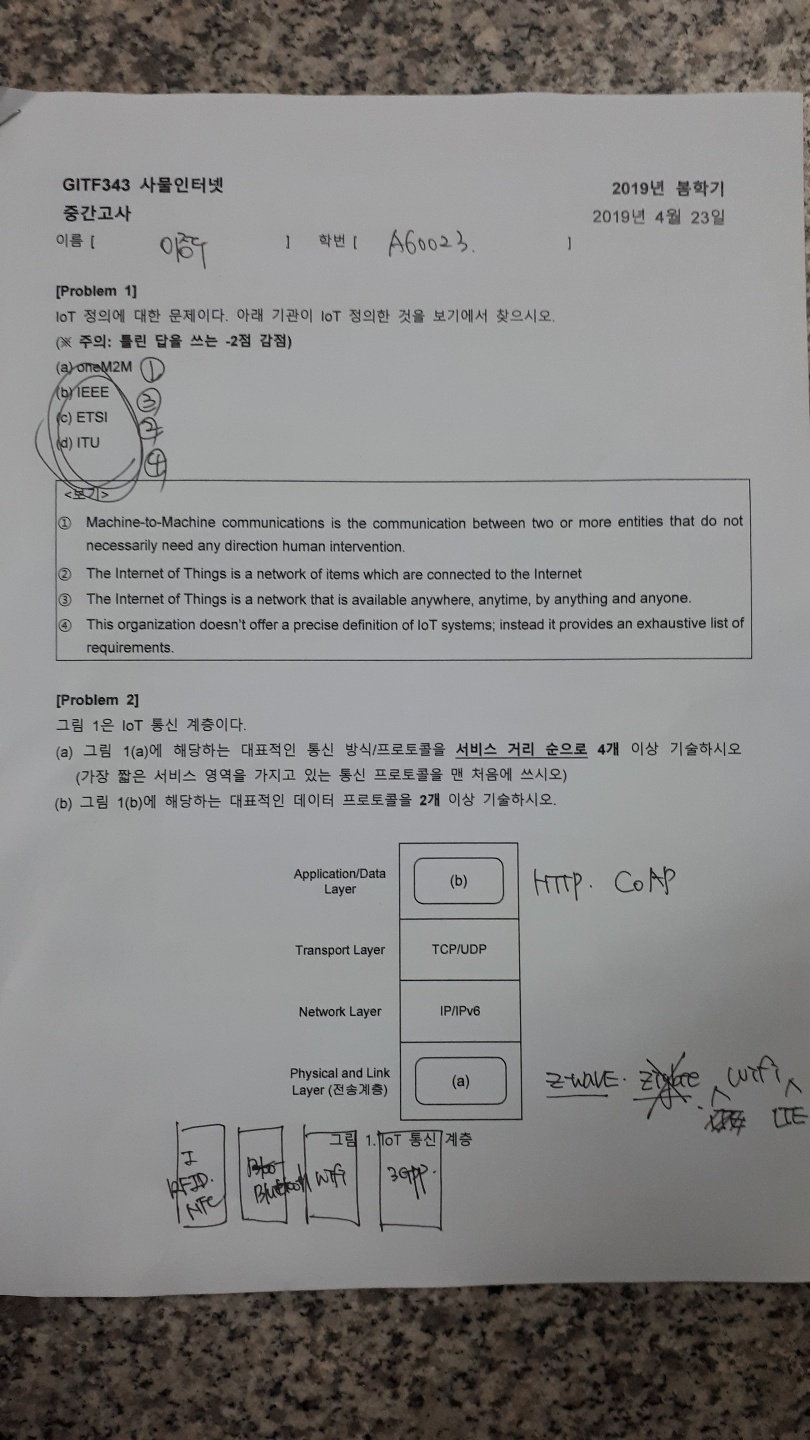 GITF343 사물인터넷
2019년 봄학기
중간고사
2019년 4월 23일
이름 [ ] 학번 [ A60023. ]
[Problem 1]
IoT 정의에 대한 문제이다. 아래 기관이 IoT 정의한 것을 보기에서 찾으시오.
(※ 주의: 틀린 답을 쓰는 -2점 감점)
(a) oneM2M ①
(b) IEEE ③
(c) ETSI ②
(d) ITU ④
<보기>
① Machine-to-Machine communications is the communication between two or more entities that do not
necessarily need any direction human intervention.
② The Internet of Things is a network of items which are connected to the Internet
③ The Internet of Things is a network that is available anywhere, anytime, by anything and anyone.
④ This organization doesn't offer a precise definition of IoT systems; instead it provides an exhaustive list of
requirements.
[Problem 2]
그림 1은 IoT 통신 계층이다.
(a) 그림 1(a)에 해당하는 대표적인 통신 방식/프로토콜을 서비스 거리 순으로 4개 이상 기술하시오
(가장 짧은 서비스 영역을 가지고 있는 통신 프로토콜을 맨 처음에 쓰시오)
(b) 그림 1(b)에 해당하는 대표적인 데이터 프로토콜을 2개 이상 기술하시오.
Application/Data
Layer
(b)
HTTP. CoAP
Transport Layer
TCP/UDP
Network Layer
IP/IPv6
Physical and Link
Layer (전송계층)
(a)
Z-WAVE. Wifi
LTE
그림 1. IoT 통신 계층
RFID.
NFC
Bluetooth
Wifi
3GPP.